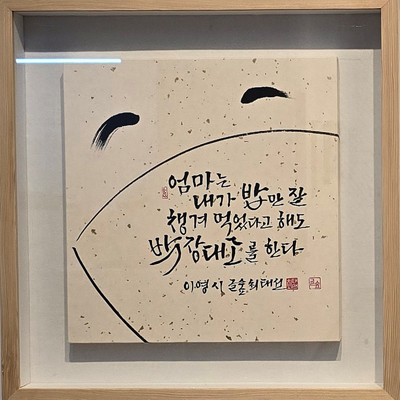 엄마는
내가 밥만 잘
챙겨 먹었다고 해도
박장대소를 한다
이영 시 글숲 최태선